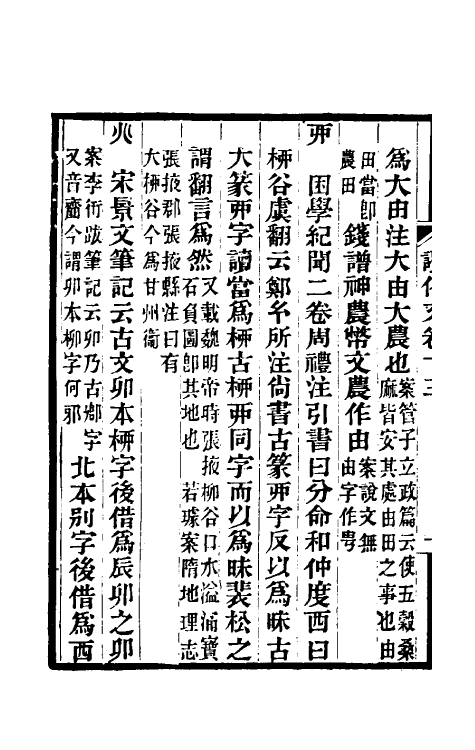 為大由注大由大農也案管子立政篇云使五穀桑
麻皆安其處由田之事也由
田當即
農田錢譜神農幣文農作由案說文無
由字作甹
丣　困學紀聞二卷周禮注引書曰分命和仲度西曰
桺谷虞翻云鄭玄所注尚書古篆丣字反以為昧古
大篆丣字讀當為桺古桺丣同字而以為昧裴松之
謂翻言為然又載魏明帝時張掖柳谷口水溢涌寶
石負圖即其地也　若璩案隋地理志
張掖郡張掖縣注曰有
大桺谷今為甘州衞
宋景文筆記云古文卯本桺字後借為辰卯之卯
案李衎跋筆記云卯乃古鄉字
又音齋今謂卯本柳字何邪北本別字後借為西